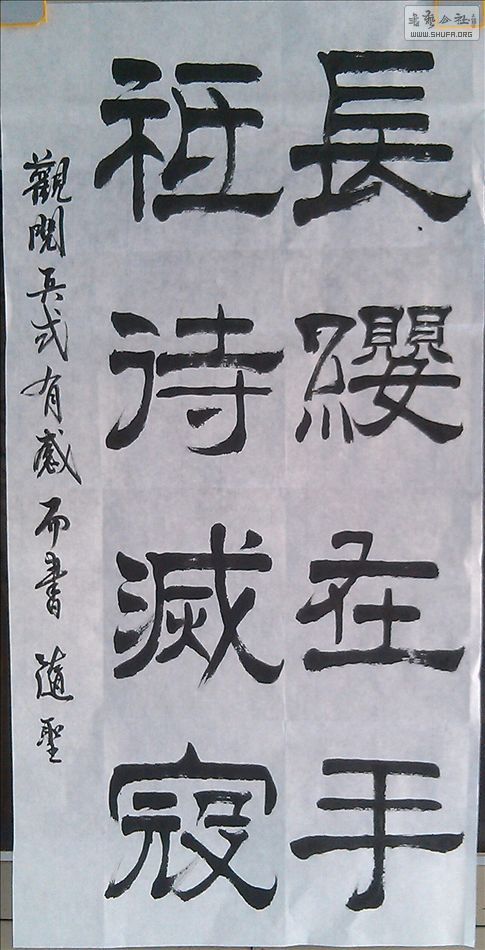 長纓在手
祗待滅寇
觀閱兵式有感而書 隨聖
书艺公社
WWW.SHUFA.ORG